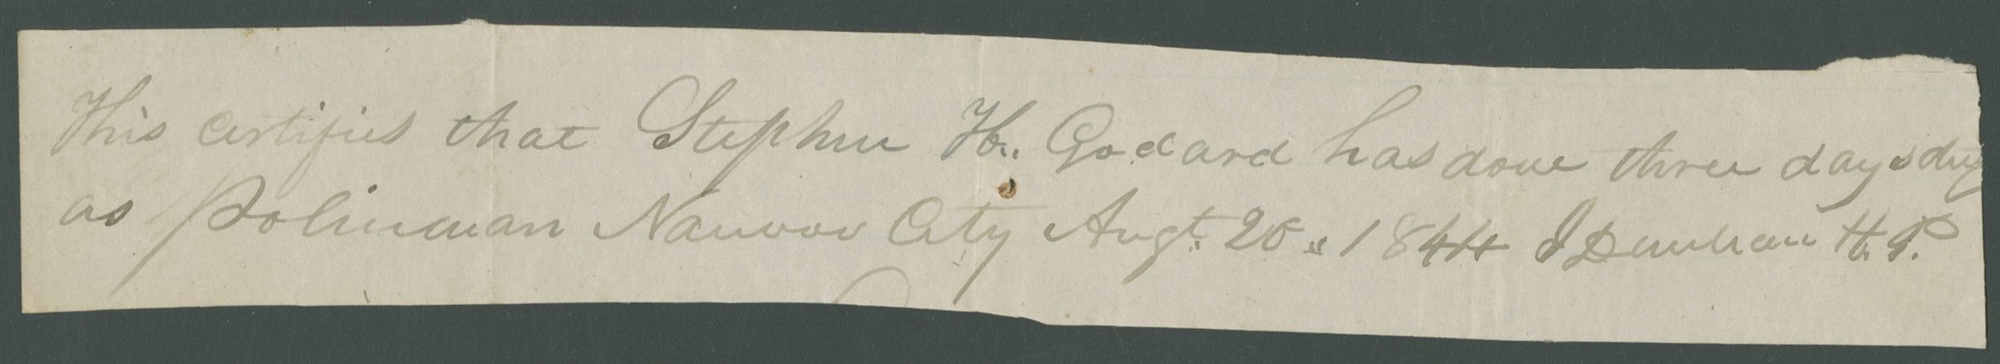 This certifies that Stephen H. Godard has done three days duty
as Policeman Nauvoo City Augt. 20" 1844 J Dunham H. P.